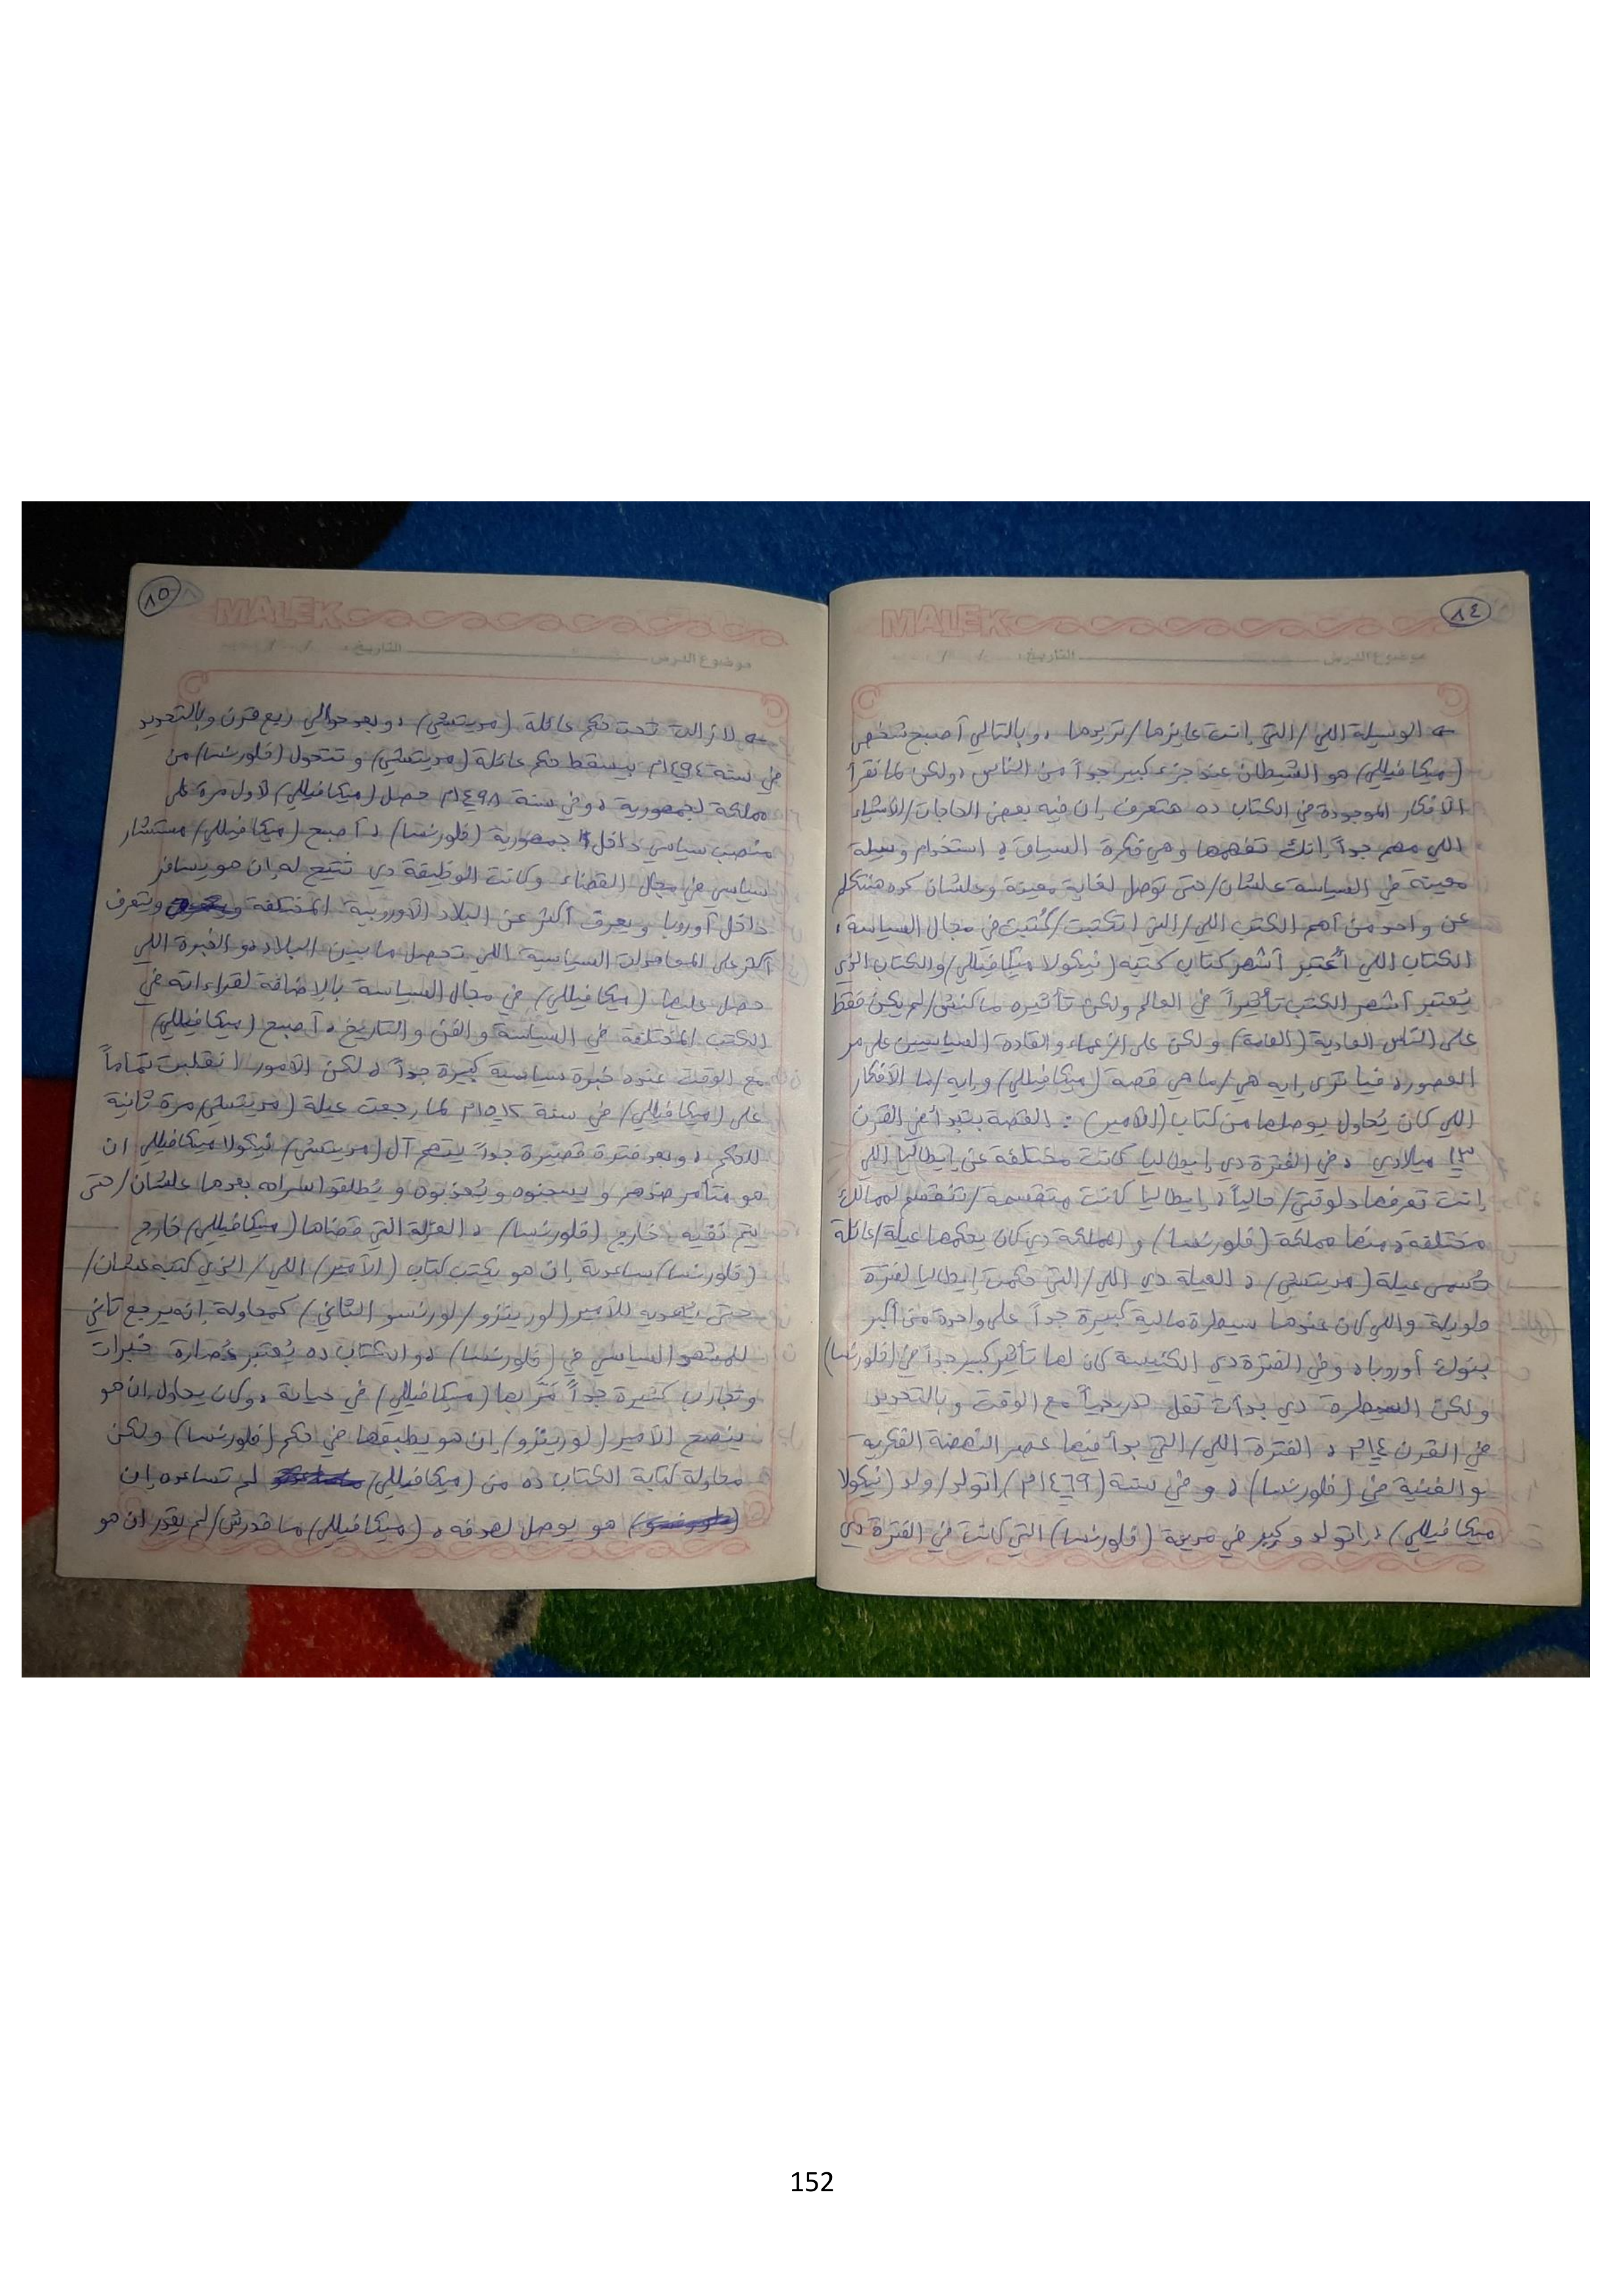 ٨٤
MALEK
موضوع الدرس التاريخ: / /
← الوسيلة اللي/التي إنت عايزها/تريدها، وبالتالي أصبح شخص
(ميكافيللي) هو الشيطان عند جزء كبير جداً من الناس، ولكن لما تقرأ
الأفكار الموجودة في الكتاب ده هتعرف إن فيه بعض الحاجات/الأشياء
اللي مهم جداً إنك تفهمها وهي فكرة السياق، استخدام وسيلة
معينة في السياسة علشان/حتى توصل لغاية معينة وعلشان كده هنتكلم
عن واحد من أهم الكتب اللي/التي اتكتبت/كُتبت في مجال السياسة،
الكتاب اللي أُعتبر أشهر كتاب كتبه (نيكولا ميكافيللي) والكتاب الذي
يُعتبر أشهر الكتب تأثيراً في العالم ولكن تأثيره ماكنش/لم يكن فقط
على الناس العادية (العامة) ولكن على الزعماء والقادة السياسيين على مر
العصور، فيا ترى إيه هي/ما هي قصة (ميكافيللي) وإيه/ما الأفكار
اللي كان يُحاول يوصلها من كتاب (الأمير): القصة بتبدأ في القرن
١٣ ميلادي، في الفترة دي إيطاليا كانت مختلفة عن إيطاليا اللي
إنت تعرفها دلوقتي/حالياً، إيطاليا كانت متقسمة/تنقسم لممالك
مختلفة، منها مملكة (فلورنسا) والمملكة دي كان يحكمها عيلة/عائلة
تُسمى عيلة (مديتشي)، العيلة دي اللي/التي حكمت إيطاليا لفترة
طويلة واللي كان عندها سيطرة مالية كبيرة جداً على واحدة من أكبر
بنوك أوروبا، وفي الفترة دي الكنيسة كان لها تأثير كبير جداً في (فلورنسا)
ولكن السيطرة دي بدأت تقل تدريجياً مع الوقت وبالتحديد
في القرن ١٤م، الفترة اللي/التي بدأ فيها عصر النهضة الفكرية
والفنية في (فلورنسا)، وفي سنة (١٤٦٩م) اتولد/ولد (نيكولا
ميكافيللي)، اتولد وكبر في مدينة (فلورنسا) التي كانت في الفترة دي
٨٥
MALEK
موضوع الدرس التاريخ: / /
← لازالت تحت حكم عائلة (مديتشي)، وبعد حوالي ربع قرن وبالتحديد
في سنة ١٤٩٤م بيسقط حكم عائلة (مديتشي) وتتحول (فلورنسا) من
مملكة لجمهورية، وفي سنة ١٤٩٨م حصل (ميكافيللي) لأول مرة على
منصب سياسي داخل جمهورية (فلورنسا)، أصبح (ميكافيللي) مستشار
سياسي في مجال القضاء وكانت الوظيفة دي تتيح له إن هو يسافر
داخل أوروبا ويعرف أكثر عن البلاد الأوروبية المختلفة وتتعرف
أكثر على المعاملات السياسية اللي تحصل ما بين البلاد، والخبرة اللي
حصل عليها (ميكافيللي) في مجال السياسة بالإضافة لقراءاته في
الكتب المختلفة في السياسة والفن والتاريخ، أصبح (ميكافيللي)
مع الوقت عنده خبرة سياسية كبيرة جداً، لكن الأمور انقلبت تماماً
على (ميكافيللي) في سنة ١٥١٢م لما رجعت عيلة (مديتشي) مرة ثانية
للحكم، وبعد فترة قصيرة جداً يتهم آل (مديتشي) نيكولا ميكافيللي ان
هو متآمر ضدهم ويسجنوه ويُعذبوه ويُطلقوا سراحه بعدها علشان/حتى
يتم نفيه خارج (فلورنسا)، العزلة التي قضاها (ميكافيللي) خارج
(فلورنسا) ساعدته إن هو يكتب كتاب (الأمير) اللي/الذي كتبه علشان/
حتى يُهديه للأمير (لورينزو/لورنسو الثاني) كمحاولة إنه يرجع تاني
للمشهد السياسي في (فلورنسا)، والكتاب ده يُعتبر عُصارة خبرات
وتجارب كثيرة جداً مَرّ بها (ميكافيللي) في حياته، وكان يحاول إن هو
ينصح الأمير (لورينزو) إن هو يطبقها في حكم (فلورنسا) ولكن
محاولة كتابة الكتاب ده من (ميكافيللي) لم تساعده إن
هو يوصل لهدفه، (ميكافيللي) ما قدرش/لم يقدر ان هو
152